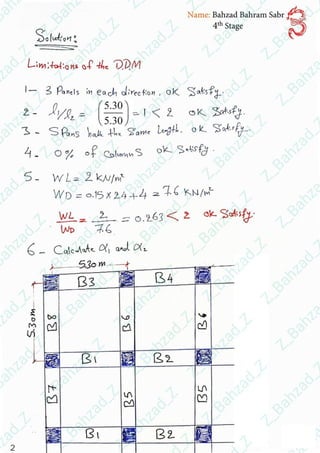 Name: Bahzad Bahram Sabr
4th Stage
3
Solution:
Limitations of the DDM
1- 3 Panels in each direction, ok Satisfy.
2- l1/l2 = (5.30/5.30) = 1 < 2 ok Satisfy.
3- Spans have the Same Length. ok Satisfy.
4- 0% of Columns ok Satisfy.
5- WL = 2 kN/m²
WD = 0.15 x 24 + 4 = 7.6 kN/m²
WL/WD = 2/7.6 = 0.263 < 2 ok Satisfy.
6- Calculate α1 and α2
5.30 m
B3 B4
5.30m
B8 B6 B6
B1 B2
B7 B5 B5
B1 B2
2
Z_Bahzad_Z